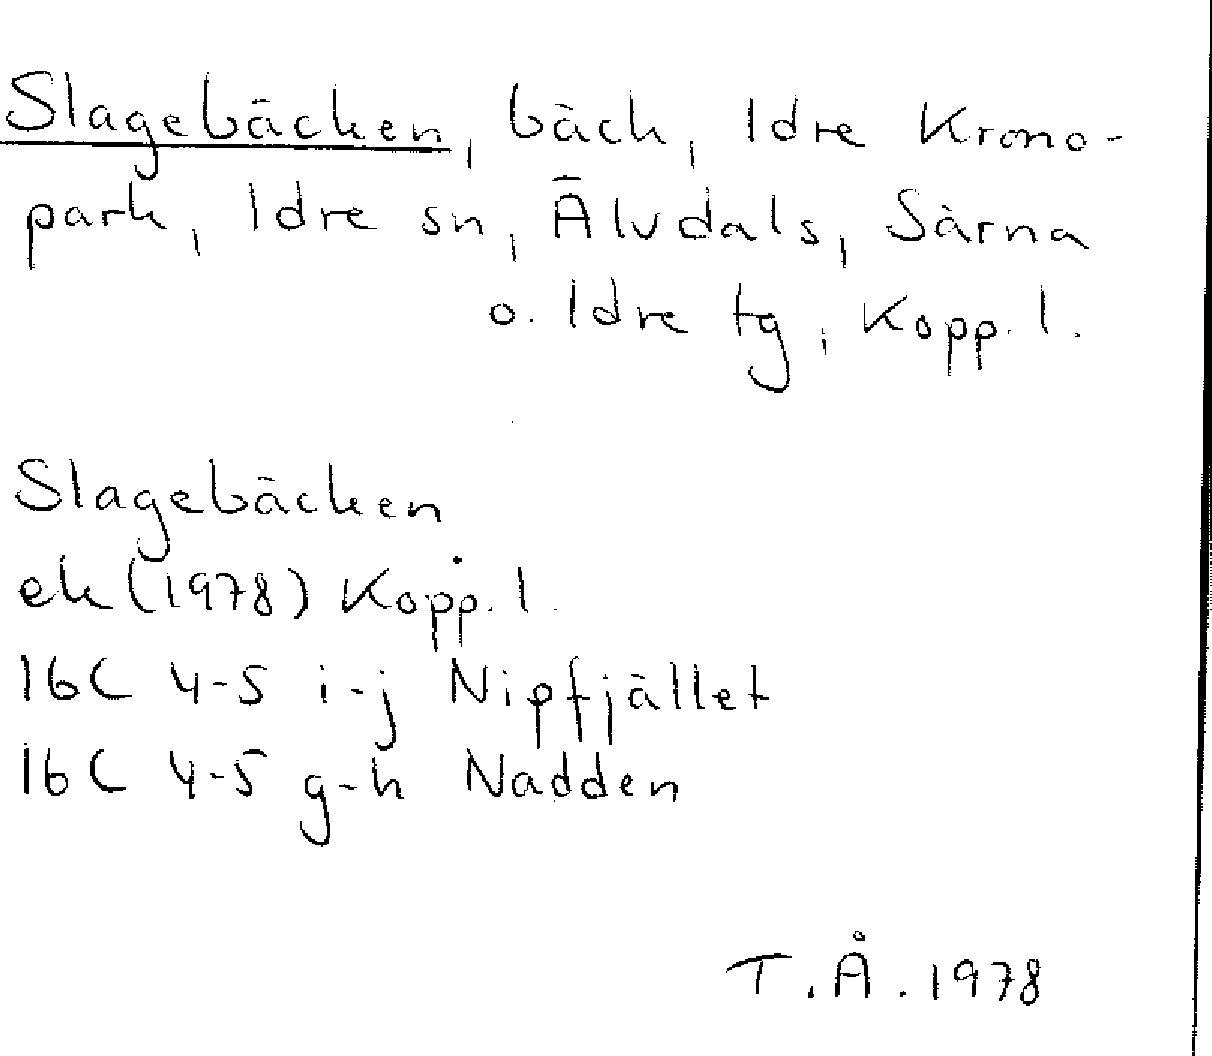 Slagebäcken, bäck, Idre Krono-
park, Idre sn, Älvdals, Särna
o. Idre tg, Kopp. l.
Slagebäcken
ek (1978) Kopp. l.
16C 4-5 i-j Nipfjället
16C 4-5 g-h Nadden
T.Å. 1978